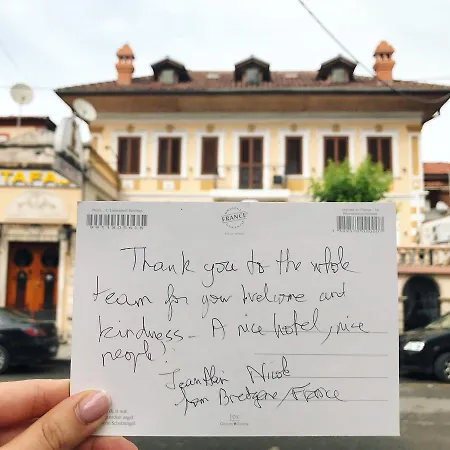 TAFA
FRANCE
Thank you to the whole
team for your Welcome and
kindness - A nice hotel, nice
people!
Nicole
from Bretagne / France